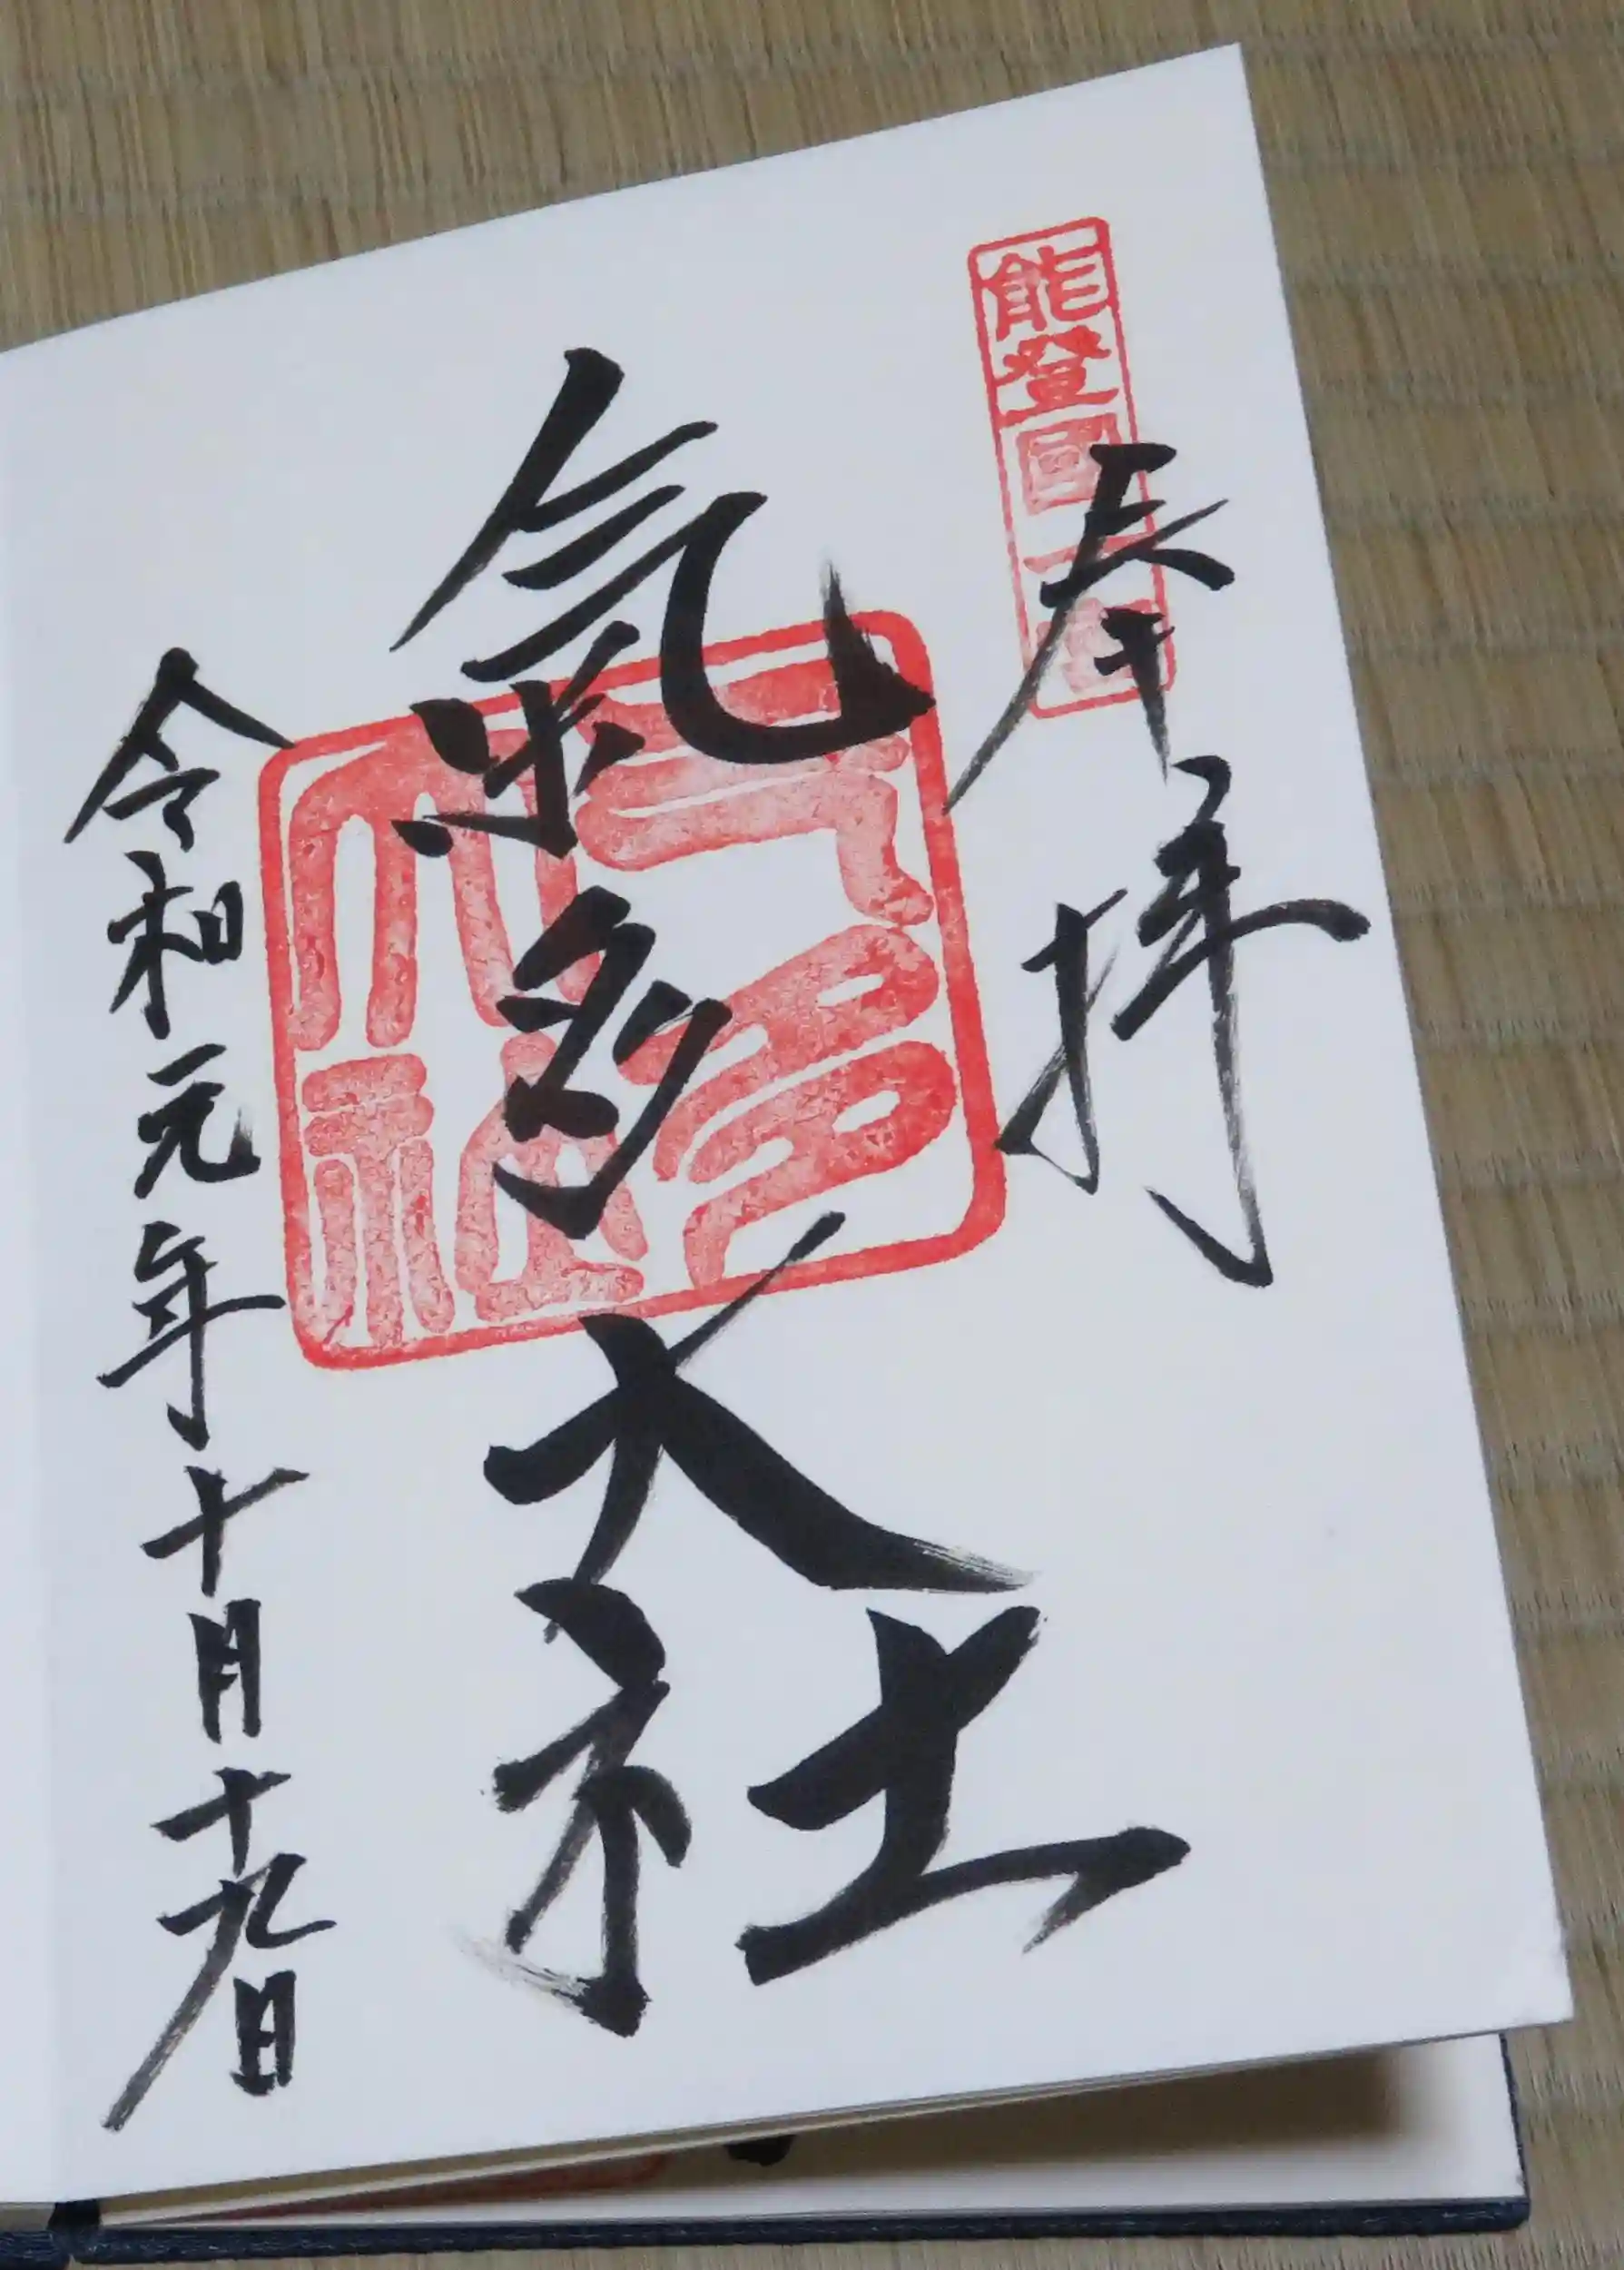 能登國一宮
奉拝
氣多大社
气多大社
令和元年十月十九日